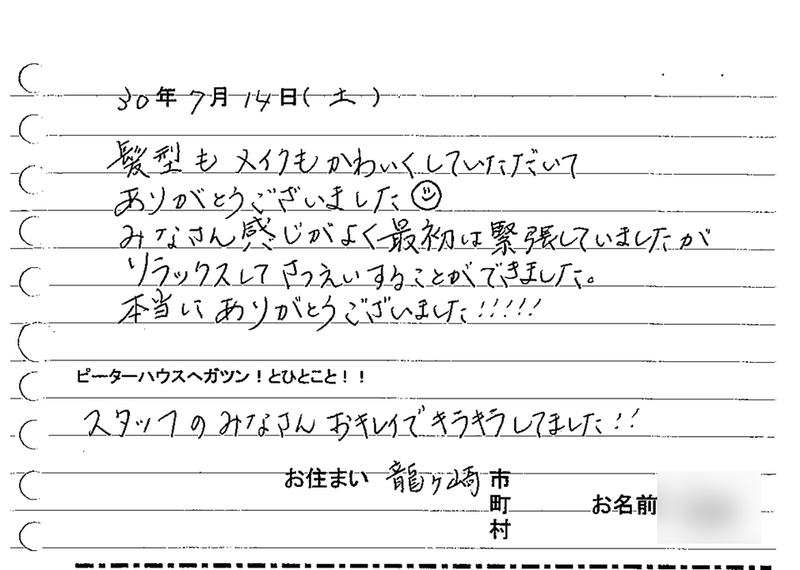 30年7月14日(土)
髪型も メイクもかわいくしていただいて
ありがとうございました
みなさん感じがよく最初は緊張していましたが
リラックスして さつえいすることができました。
本当に ありがとうございました!!!!!
ピーターハウスへガツン!とひとこと!!
スタッフの みなさん おキレイで キラキラしてました!!
お住まい 龍ヶ崎 市 お名前
町
村